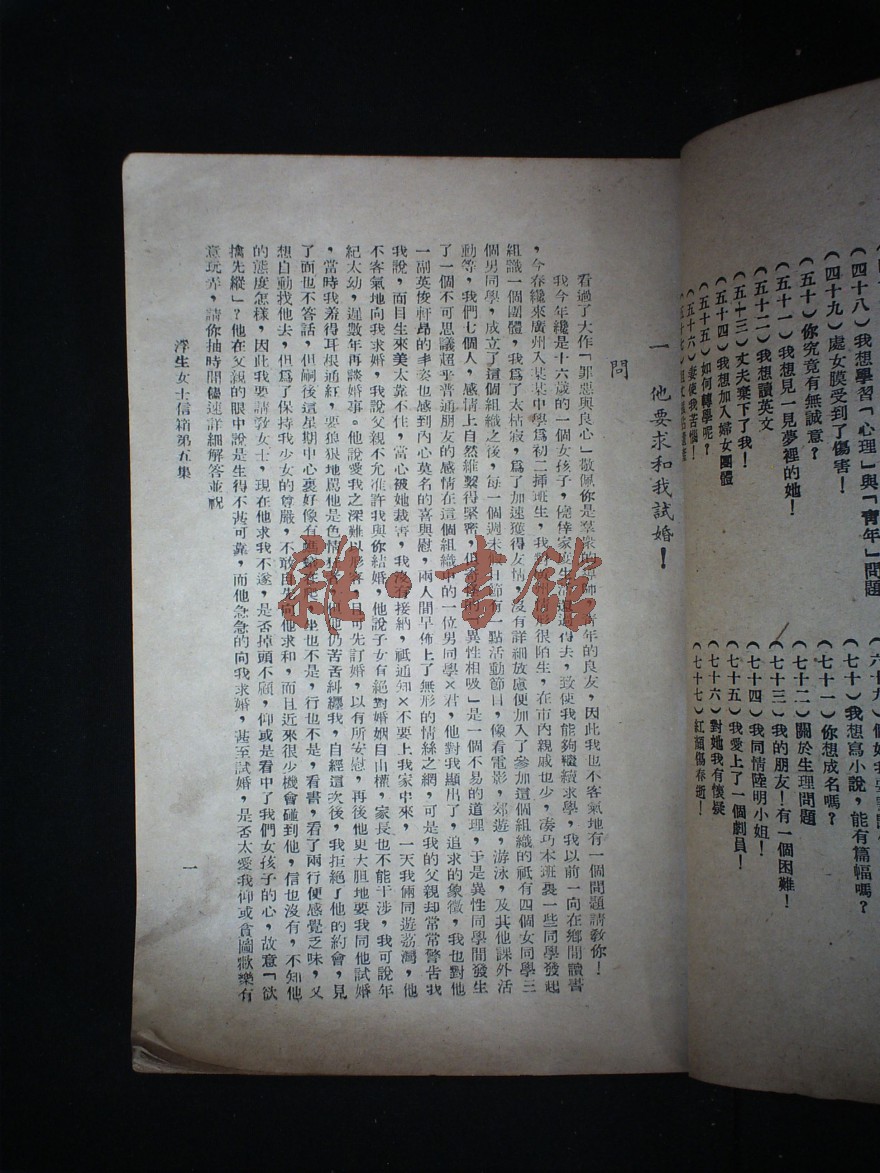 (四十八)我想學習「心理」與「青年」問題
(四十九)處女膜受到了傷害!
(五十)你究竟有無誠意?
(五十一)我想見一見夢裡的她!
(五十二)我想讀英文
(五十三)丈夫棄下了我!
(五十四)我想加入婦女團體
(五十五)如何轉學呢?
(五十六)妻使我苦惱!
六十九)
(七十)我想寫小說,能有篇幅嗎?
(七十一)你想成名嗎?
(七十二)關於生理問題
(七十三)我的朋友!有一個困難!
(七十四)我同情陸明小姐!
(七十五)我愛上了一個劇員!
(七十六)對她我有懷疑
(七十七)紅顏傷春逝!
一 他要求和我試婚!
問
看過了大作「罪惡與良心」敬佩你是羣衆的導師,青年的良友,因此我也不客氣地有一個問題請教你!
我今年纔是十六歲的一個女孩子,僥倖家在生活過得去,致使我能夠繼續求學,我以前一向在鄉間讀書
,今春纔來廣州入某某中學爲初二揷班生,我對很陌生,在市內親戚也少,湊巧本班裏一些同學發起
組識一個團體,我爲了太枯寂,爲了加速獲得友情,沒有詳細放慮便加入了參加這個組織的祗有四個女同學三
個男同學,成立了這個組織之後,每一個週末日節有一點活動節目,像看電影,郊遊,游泳,及其他課外活
動等,我們七個人,感情上自然維繫得緊密,但奇怪的「異性相吸」是一個不易的道理,于是異性同學間發生
了一個不可思議超乎普通朋友的感情在這個組織中的一位男同學×君,他對我顯出了,追求的象徵,我也對他
一副英悛軒昂的丰姿也感到內心莫名的喜與慰,兩人間早佈上了無形的情絲之網,可是我的父親却常常警告我
我說,而目生來美太靠不住,當心被她裁害,我沒有接納,祗通知×不要上我家中來,一天我倆同遊荔灣,他
不客氣地向我求婚,我說父親不允准許我與你結婚,他說子女有絕對婚姻自由權,家長也不能干涉,我可說年
紀太幼,遲數年再談婚事。他說愛我之深難以形容,且可先訂婚,以有所安慰,再後他更大胆地要我同他試婚
,當時我羞得耳根通紅,要狼狠地駡他是色情,他仍苦苦糾纒我,自經這次後,我拒絕了他的約會,見
了面也不答話,但嗣後這星期中心裏好像有,坐也不是,行也不是,看書,看了兩行便感覺乏味,又
想自動找他去,但爲了保持我少女的尊嚴,不敢自先向他求和,而且近來很少機會碰到他,信也沒有,不知他
的態度怎樣,因此我要請敎女士,現在他求我不遂,是否掉頭不顧,仰或是看中了我們女孩子的心,故意「欲
擒先縱」?他在父親的眼中說是生得不甚可靠,而他急急的向我求婚,甚至試婚,是否太愛我仰或貪圖歡樂有
意玩弄,請你抽時間儘速詳細解答並祝
浮生女士信箱第五集
一
雜·書館